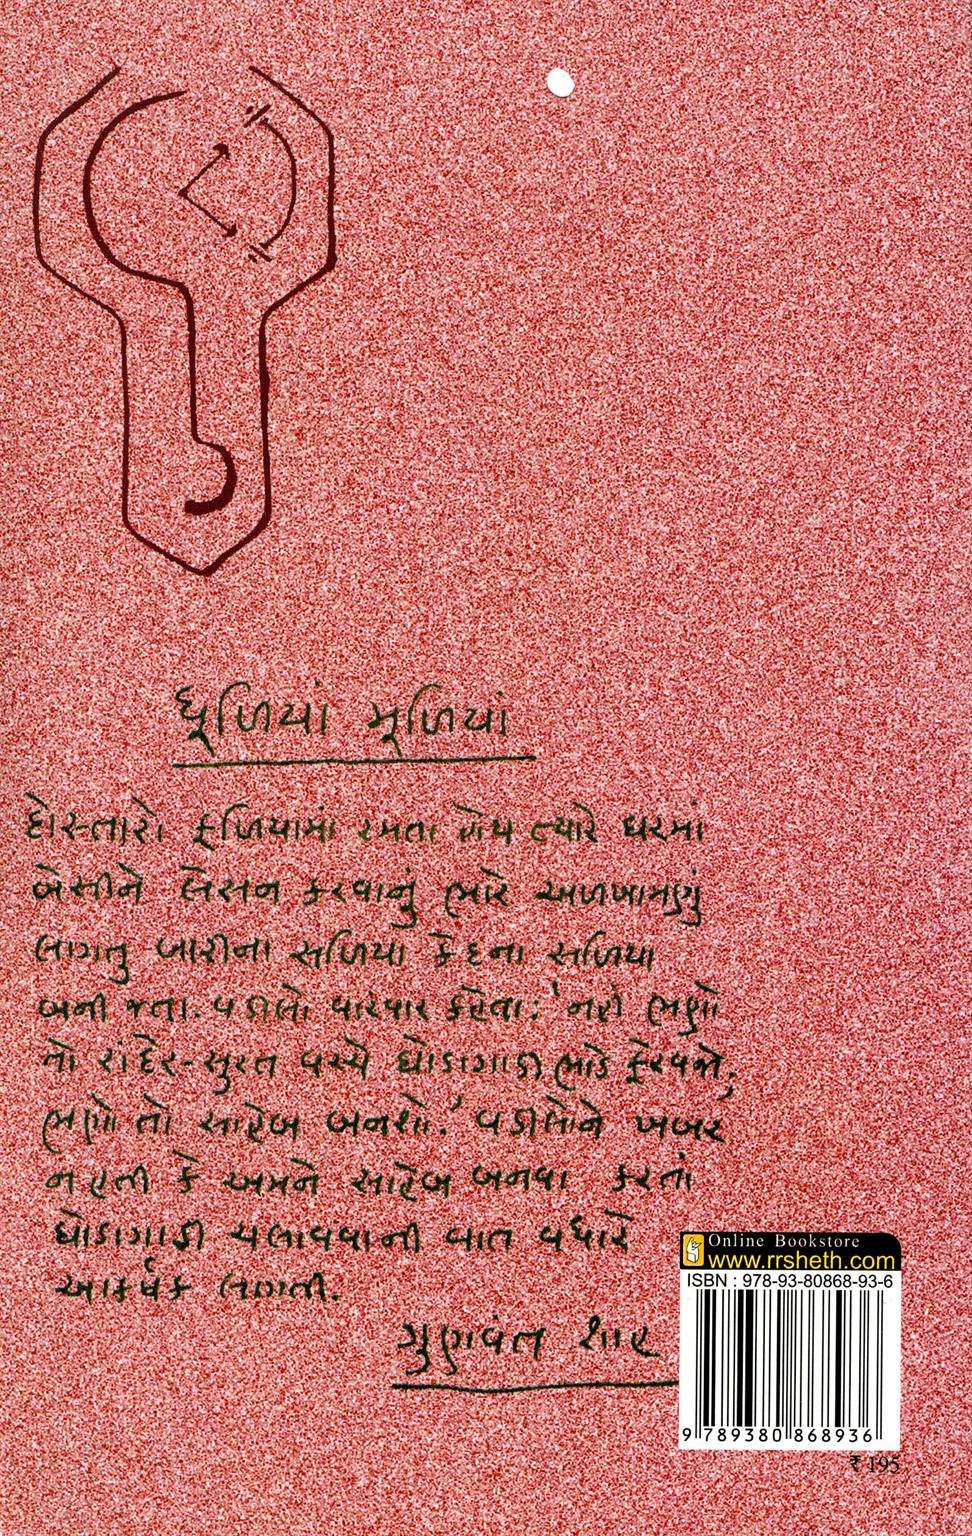 ધૂળિયાં મૂળિયાં
દોસ્તારો ફળિયામાં રમતા હોય ત્યારે ઘરમાં
બેસીને લેસન કરવાનું ભારે અળખામણું
લાગતુ બારીના સળિયા કેદના સળિયા
બની જતા. વડીલો વારંવાર કહેતા: 'નહીં ભણો
તો રાંદેર-સુરત વચ્ચે ઘોડાગાડી ભાડે ફેરવજો,
ભણો તો સાહેબ બનશો.' વડીલોને ખબર
ન હતી કે અમને સાહેબ બનવા કરતાં
ઘોડાગાડી ચલાવવાની વાત વધારે
આકર્ષક લાગતી.
ગુણવંત શાહ
Online Bookstore
www.rrsheth.com
ISBN : 978-93-80868-93-6
9 789380 868936
₹ 195